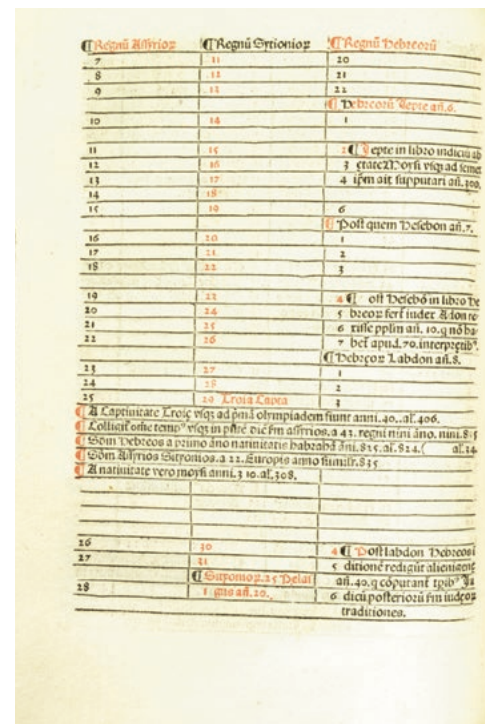 ¶ Regnū Assyrioꝝ ¶ Regnū Sytionioꝝ ¶ Regnū Hebreorū
7 11 20
8 12 21
9 13 22
¶ Hebreorū Jepte añ.6.
10 14 1
11 15 2 ¶ Jepte in libro iudicū ab
12 16 3 etate Moysi vsqꝫ ad semet
13 17 4 ip̄m ait supputari añ.300.
14 18
15 19 6
¶ Post quem Hesebon añ.7.
16 20 1
17 21 2
18 22 3
19 23 4 ¶ ost Hesebō in libro He
20 24 5 breoꝝ fert iudex Adon re
21 25 6 xisse pplm̄ añ.10.q nō ha
22 26 7 bet̄ apud.70.interpretib⁹.
¶ Hebreoꝝ Labdon añ.8.
23 27 1
24 28 2
25 29 Troia Capta 3
¶ A Captiuitate Troie vsqꝫ ad pͥmā olympiadem fiunt anni.40..al̄.406.
¶ Colligit̄ om̄e temp⁹ vsqꝫ in pn̄tē diē s̄m assyrios.a 43.regni nini āno.nini.835
¶ Sc̄dm Hebreos a primo āno natiuitatis habrahā āni.825.al̄.824.( al̄.14
¶ Sc̄dm Assyrios Sityonios.a 22.Europis anno simil̄r.835
¶ A natiuitate vero moysi anni.3 10.al̄.308.
26 30 4 ¶ Post labdon Hebreos i
27 31 5 ditionē redigūt alienigenę
¶ Sityonioꝝ.25 Pelai añ.40.q cōputant̄ tpib⁹ Iu
28 1 gus añ.20. 6 dicū posteriorū s̄m iudęoꝝ
traditiones.